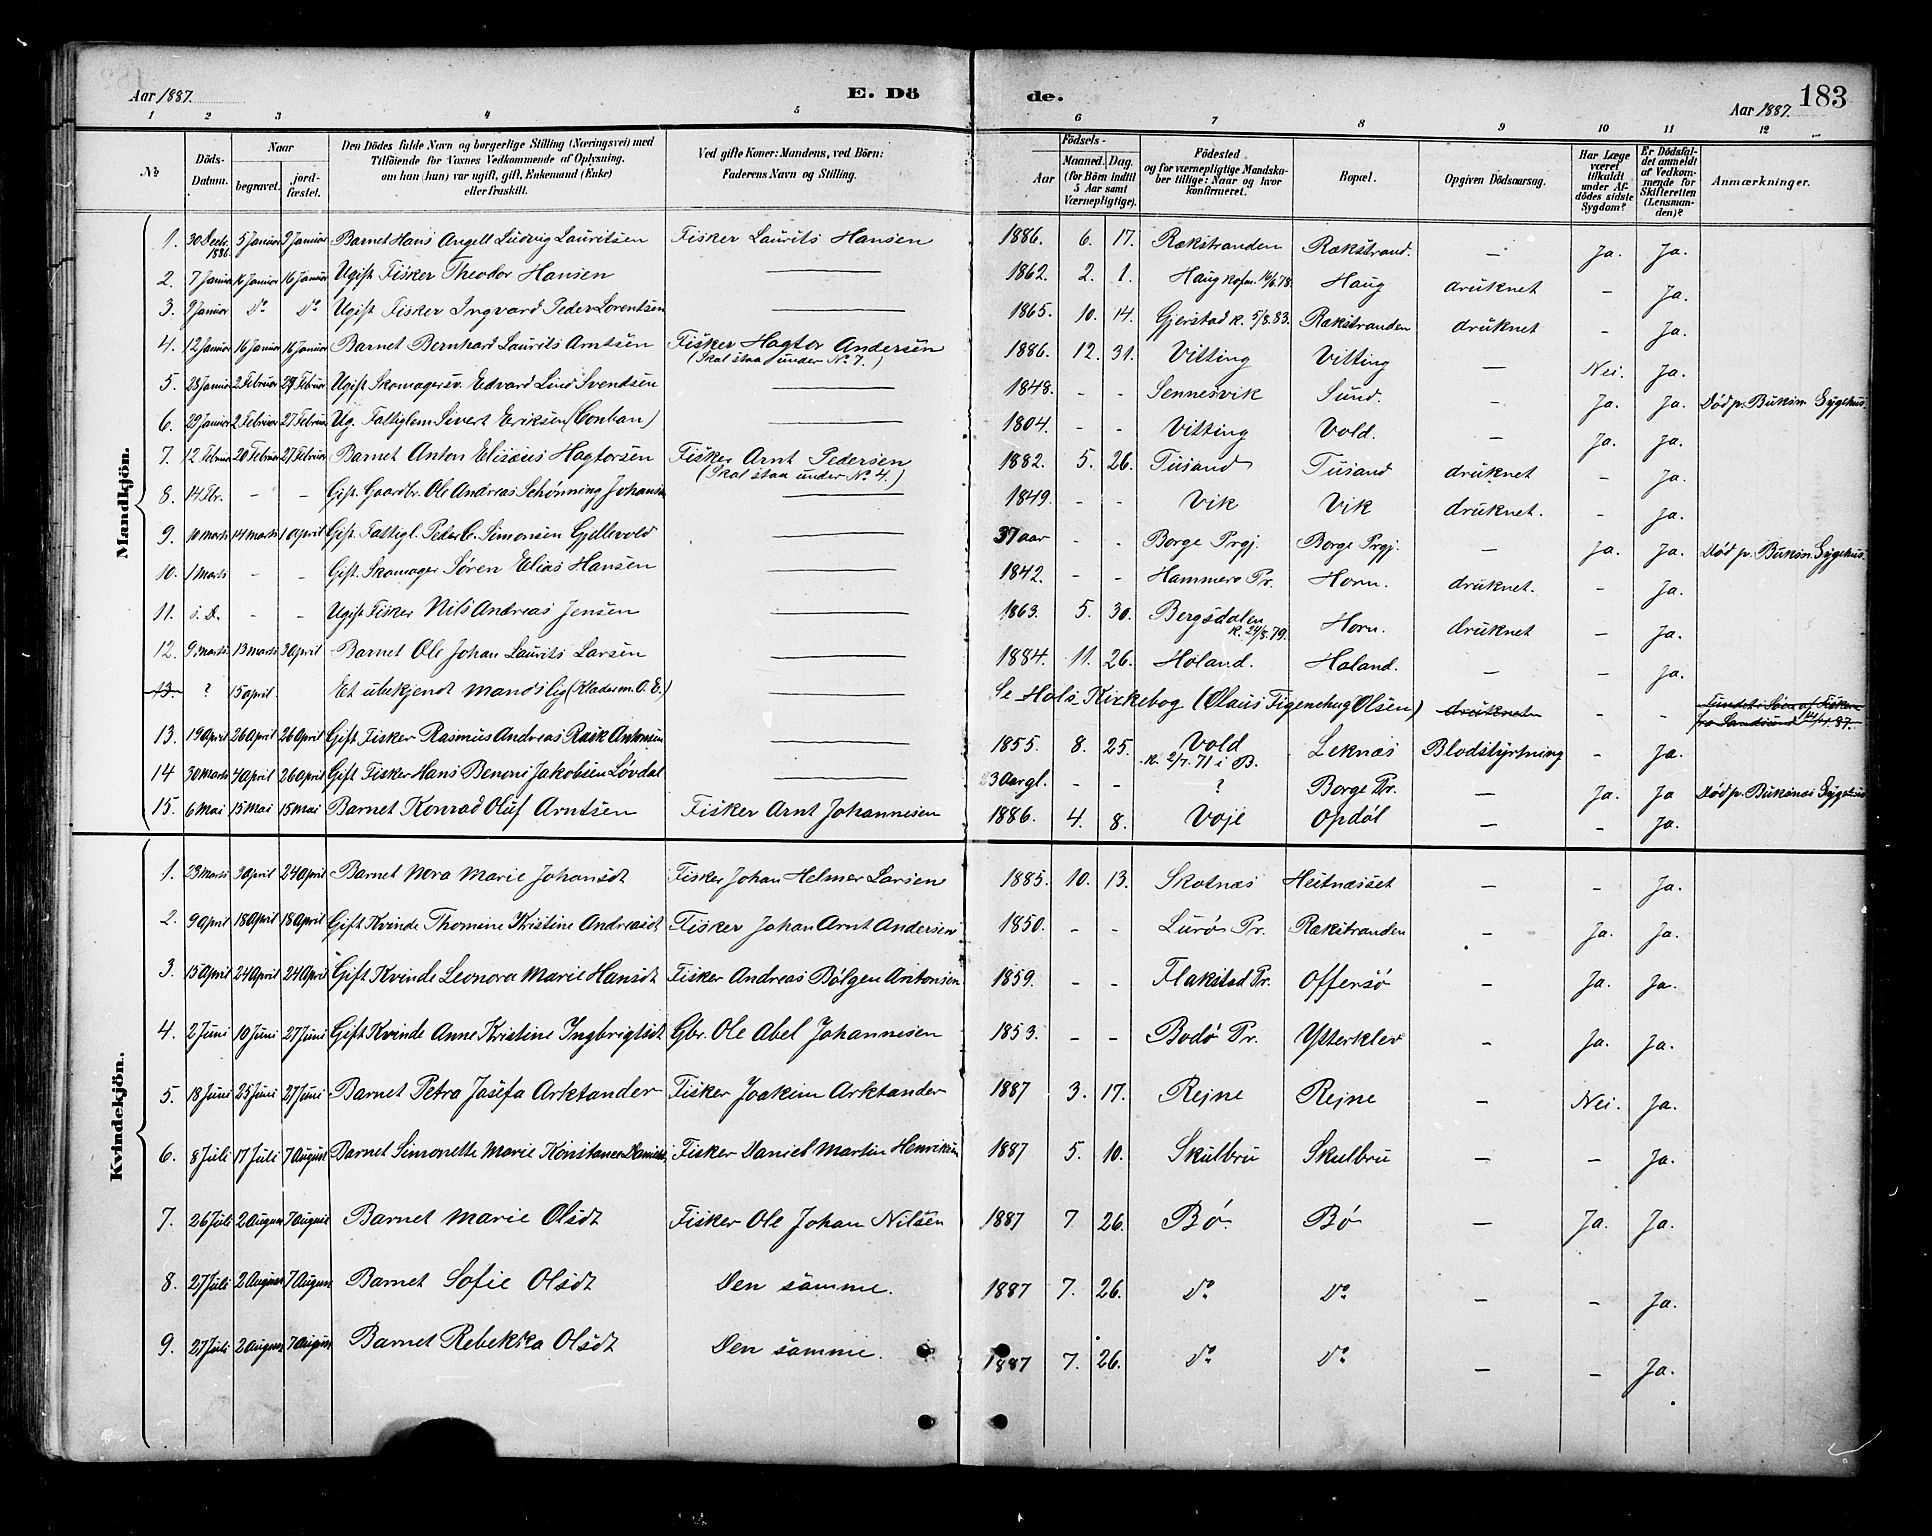 Aar 1887. E. Dö de. Aar 1887. 183
1 2 3 4 5 6 7 8 9 10 11 12
№ Döds-Datum. Naar begravet. jordfæstet. Den Dödes fulde Navn og borgerlige Stilling (Næringsvei) med Tilföiende for Voxnes Vedkommende af Oplysning, om han (hun) var ugift, gift, Enkemand (Enke) eller fraskilt. Ved gifte Koner: Mandens, ved Börn: Faderens Navn og Stilling. Födsels- Aar Maaned. Dag. (for Börn indtil 5 Aar samt Værnepligtige). Födested og for værnepligtige Mandskaber tillige: Naar og hvor konfirmeret. Bopæl. Opgiven Dödsaarsag. Har Læge været tilkaldt under Afdödes sidste Sygdom? Er Dödsfaldet anmeldt af Vedkommende for Skifteretten (Lensmanden)? Anmærkninger.
Mandkjön.
1. 30 Decbr. 1886. 5 Januar 9 Januar Barnet Hans Angell Ludvig Lauritsen Fisker Laurits Hansen 1886. 6. 17. Rækstranden Rækstrand. — Ja. Ja.
2. 7 Januar 16 Januar 16 Januar Ugift Fisker Theodor Hansen — 1862. 2. 1. Haug Kofm. 16/6.78. Haug druknet – Ja.
3. 9 Januar Do Do Ugift Fisker Ingvard Peder Lorentsen — 1865. 10. 14. Gjerstad k. 5/8.83. Rækstranden druknet – Ja.
4. 12 Januar 16 Januar 16 Januar Barnet Bernhard Laurits Arntsen Fisker Hagtor Andersen (Skal staa under No 7.) 1886. 12. 31. Vitting Vitting — Nei. Ja.
5. 28 Januar 2 Februar 27 Februar Ugift Skomagersv. Edvard Lind Svendsen — 1848. - - Sennesvik Sund. – Ja. Ja. Död p. Buksn. Sygehus.
6. 29 Januar 2 Februar 27 Februar Ug. Fattiglem Sivert Eriksen (Conhan) — 1804. - - Vitting Vold. – Ja. Ja.
7. 12 Februar 20 Februar 27 Februar Barnet Anton Elisæus Hagtorsen Fisker Arnt Pedersen (Skal staa under No 4.) 1882. 5. 26. Tusand Tusand druknet – Ja.
8. 14 Fbr. – – Gift Gaardbr. Ole Andreas Schönning Johansen — 1849. - - Vik Vik druknet. – Ja.
9. 10 marts 14 marts 10 April Gift. Fattigl. Peder C. Simonsen Gjellevold — 37 aar - - Borge Prgj. Borge Prgj. — Ja. Ja. Död p. Buksn. Sygehus.
10. 1 Marts – – Gift. Skomager Sören Elias Hansen — 1842. - - Hammerö Pr. Horn. druknet. – Ja.
11. s. D. – – Ugift Fisker Nils Andreas Jensen — 1863. 5. 30. Bergsdalen k. 24/8.79. Horn. druknet – Ja.
12. 9 marts 13 marts 3 April Barnet Ole Johan Laurits Larsen — 1884. 11. 26. Holand. Holand. – – Ja.
13. ? 15 April Et ubekjendt mandslig (Kladesm. O. E.) — Se Hols Kirkebog (Olaus Figenchug Olsen) druknet – –
13. 19 April 26 April 26 April Gift Fisker Rasmus Andreas Rask Antonsen — 1855. 8. 25. Vold k. 2/7.71 i B. Leknæs Blodstyrtning – Ja.
14 30 marts 4 April 26 April Gift Fisker Hans Benoni Jakobsen Lövdal — 23 Aar gl. - - ? Borge Pr. — Ja. Ja Död p. Buksnæs Sygehus
15. 6 Mai 15 Mai 15 Mai Barnet Konrad Oluf Arntsen Fisker Arnt Johannesen 1886. 4. 8. Voje Opdöl — – Ja.
Kvindekjön.
1. 23 Marts 3 April 24 April Barnet Nora Marie Johansdt Fisker Johan Helmer Larsen 1885. 10. 13. Skotnæs Heitnæsset — – Ja.
2. 9 April 18 April 18 April Gift Kvinde Thomine Kristine Andreasdt Fisker Johan Arnt Andersen 1850. - - Lurö Pr. Rækstranden – Ja. Ja.
3. 15 April 24 April 24 April Gift Kvinde Leonora Marie Hansdt Fisker Andreas Bölgen Antonsen 1859. - - Flakstad Pr. Offersö – Ja. Ja.
4. 2 Juni 10 Juni 27 Juni Gift Kvinde Anne Kristine Ingbrigtsdt Gbr. Ole Abel Johannesen 1853. - - Bodö Pr. Ytterklev – Ja. Ja.
5. 18 Juni 25 Juni 27 Juni Barnet Petra Josefa Arktander Fisker Joakim Arktander 1887 3. 17. Rejne Rejne – Nei. Ja.
6. 8 Juli 17 Juli 7 August Barnet Simonette Marie Konstance Danielsd. Fisker Daniel Martin Henriksen 1887 5. 10. Skulbru Skulbru – – Ja.
7. 26 Juli 2 August 7 August Barnet Marie Olsdt Fisker Ole Johan Nilsen 1887 7 26. Bö Bö — Ja. Ja.
8. 27 Juli 2 August 7 August Barnet Sofie Olsdt Den samme. 1887 7. 26. Do Do – – Ja.
9. 27 Juli 2 August 7 August Barnet Rebekka Olsdt Den samme. 1887 7. 26. Do Do – – Ja.